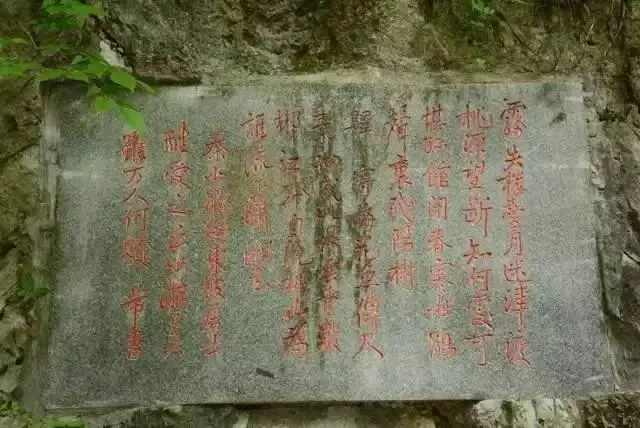 霧失樓臺月迷津渡
桃源望断知何處可
堪孤館閉春寒杜鵑
聲裏殘陽樹
驛寄梅花魚傳尺
素砌成此恨無重數
郴江本自繞郴山為
誰流下瀟湘去
秦少游辞東坡居士
酷愛之云少游已矣
雖万人何贖 芾書